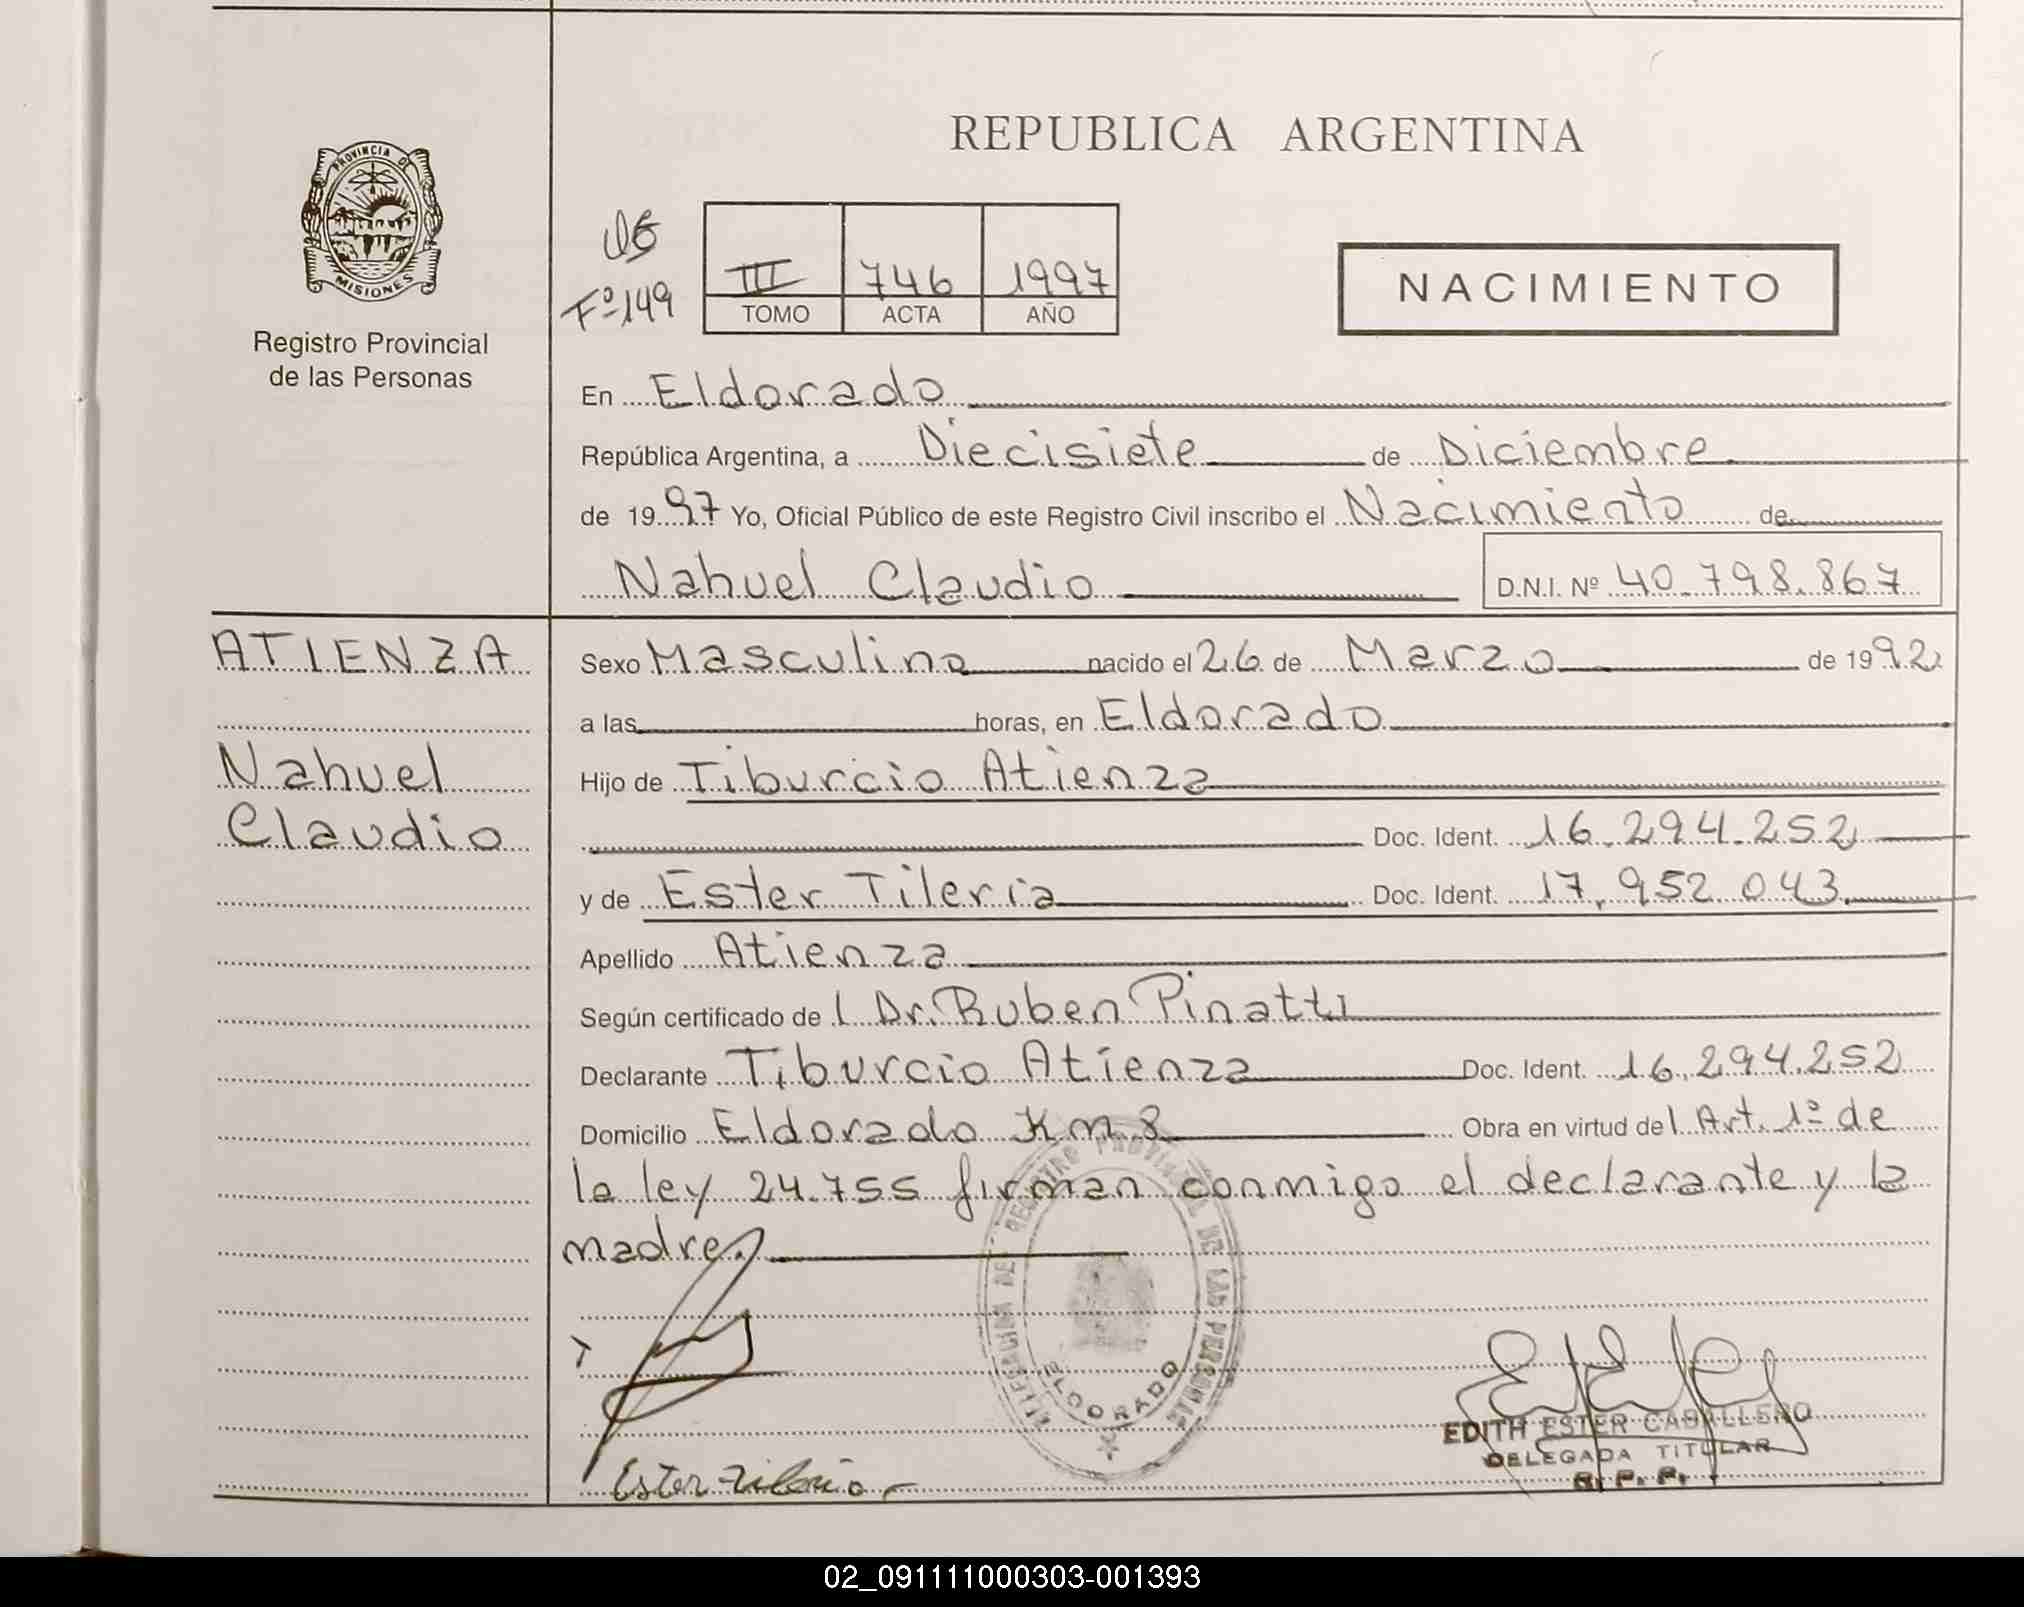 PROVINCIA DE
MISIONES
Registro Provincial
de las Personas
REPUBLICA ARGENTINA
Fº 149
III 746 1997
TOMO ACTA AÑO
NACIMIENTO
En Eldorado
República Argentina, a Diecisiete de Diciembre
de 1997 Yo, Oficial Público de este Registro Civil inscribo el Nacimiento de
Nahuel Claudio D.N.I. Nº 40.798.867
ATIENZA
Nahuel
Claudio
Sexo Masculino nacido el 26 de Marzo de 1992
a las horas, en Eldorado
Hijo de Tiburcio Atienza
Doc. Ident. 16.294.252
y de Ester Tileria Doc. Ident. 17.952.043
Apellido Atienza
Según certificado del Dr. Ruben Pinatti
Declarante Tiburcio Atienza Doc. Ident. 16.294.252
Domicilio Eldorado Km 8 Obra en virtud del Art. 1º de
la ley 24.755 firman conmigo el declarante y la
madre.
REGISTRO PROVINCIAL DE LAS PERSONAS
ELDORADO
Ester Tileria
EDITH ESTER CABALLERO
DELEGADA TITULAR
R. P. P.
02_091111000303-001393